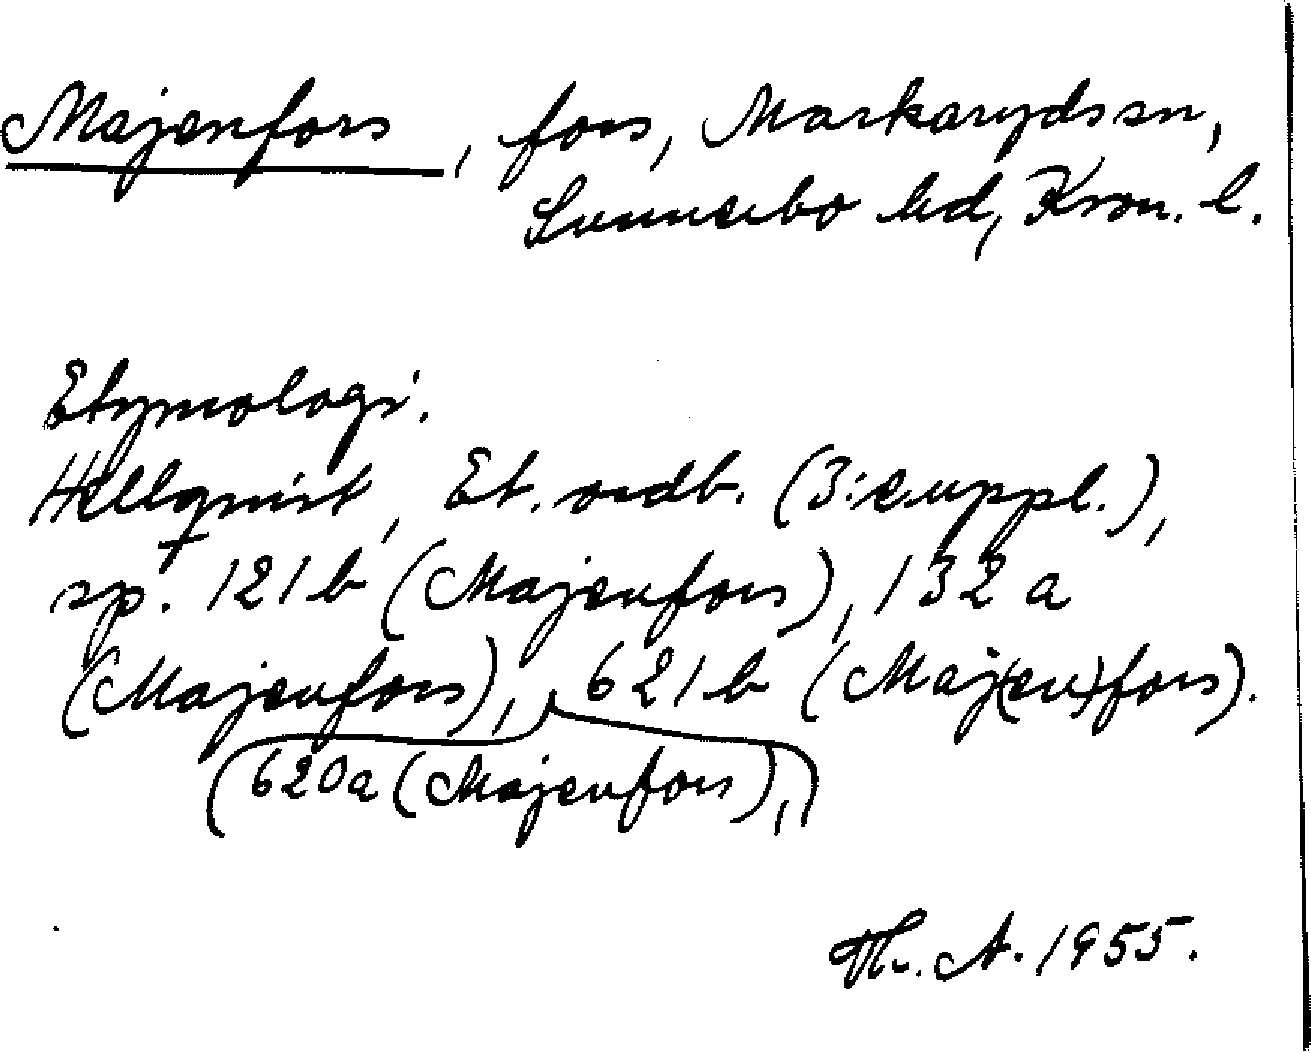 Majenfors, fors, Markaryds sn,
Sunnerbo hd, Kron. l.
Etymologi.
Hellquist, Et. ordb. (3:e uppl.),
sp. 121 b (Majenfors), 132 a
(Majenfors), 621 b (Maj(en)fors).
(620a (Majenfors),)
Th. A. 1955.